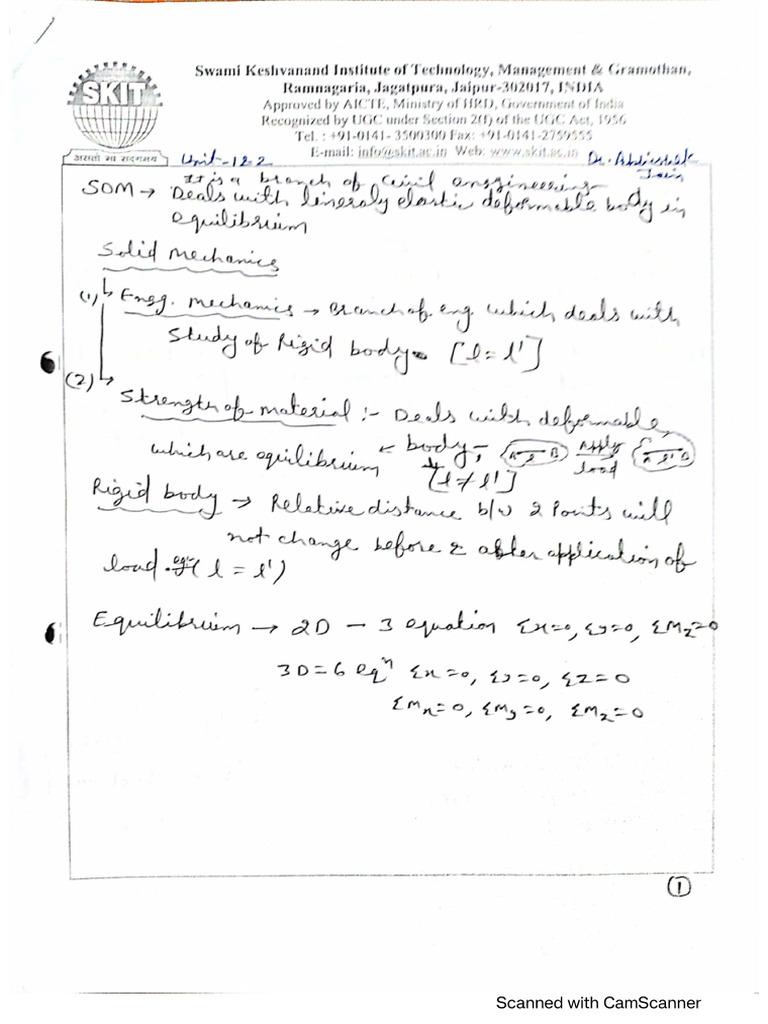 Swami Keshvanand Institute of Technology, Management & Gramothan,
Ramnagaria, Jagatpura, Jaipur-302017, INDIA
Approved by AICTE, Ministry of HRD, Government of India
Recognized by UGC under Section 2(f) of the UGC Act, 1956
Tel. : +91-0141- 3500300 Fax: +91-0141-2759555
E-mail: info@skit.ac.in Web: www.skit.ac.in
SKIT
असतो मा सदगमय
Unit-1&2
Dr. Abhishek Jain
It is a branch of civil enngineering
SOM → Deals with lineraly elastic deformable body in
equilibrium
Solid Mechanics
(1) ↳ Engg. mechanics → Branch of eng. which deals with
Study of Rigid body. [l = l']
(2) ↳ Strength of material :- Deals with deformable
which are equilibrium ← body, A l B Apply load A l' B
[l ≠ l']
Rigid body → Relative distance b/w 2 Points will
not change before & after application of
load. eg. (l = l')
Equilibrium → 2D - 3 equation Σx=0, Σy=0, ΣMz=0
3D = 6 eqⁿ Σx=0, Σy=0, Σz=0
ΣMx=0, ΣMy=0, ΣMz=0
1
Scanned with CamScanner